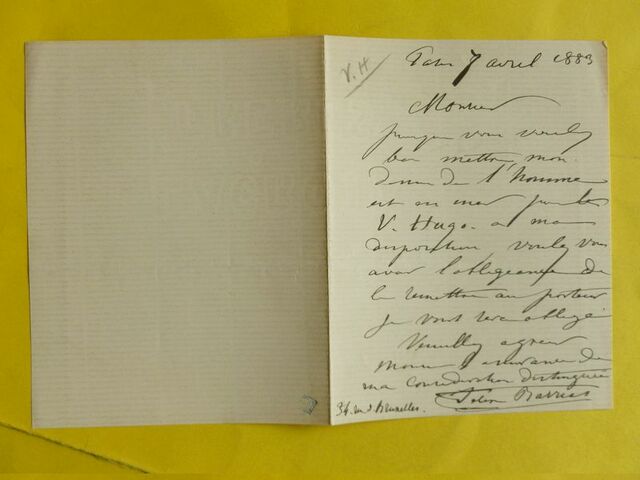 V. H
Paris 7 avril 1883
Monsieur
puisque vous voulez
bien mettre mon
dessin de l'homme
V. Hugo. a ma
disposition, voulez vous
avoir l'obligeance de
le remettre au porteur
je vous serai obligé
Veuillez agréer
Monsieur l'assurance de
ma considération distinguée
34 rue d Bruxelles.